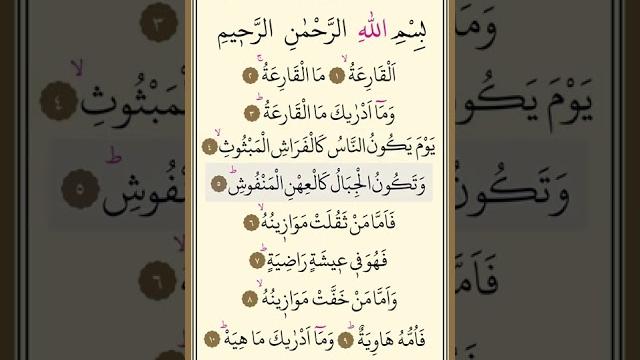 بِسْمِ اللّٰهِ الرَّحْمٰنِ الرَّحٖيمِ
اَلْقَارِعَةُۙ ١ مَا الْقَارِعَةُۚ ٢
وَمَٓا اَدْرٰيكَ مَا الْقَارِعَةُۜ ٣
يَوْمَ يَكُونُ النَّاسُ كَالْفَرَاشِ الْمَبْثُوثِۙ ٤
وَتَكُونُ الْجِبَالُ كَالْعِهْنِ الْمَنْفُوشِۜ ٥
فَاَمَّا مَنْ ثَقُلَتْ مَوَازٖينُهُۙ ٦
فَهُوَ فٖي عٖيشَةٍ رَاضِيَةٍۜ ٧
وَاَمَّا مَنْ خَفَّتْ مَوَازٖينُهُۙ ٨
فَاُمُّهُ هَاوِيَةٌۜ ٩ وَمَٓا اَدْرٰيكَ مَا هِيَهْۜ ١٠